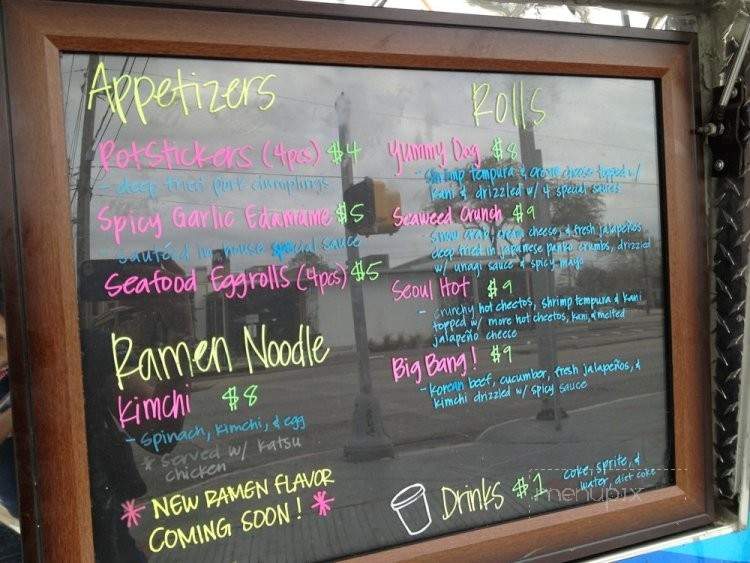 Appetizers
PotStickers (4pcs) $4
- deep fried pork dumplings
Spicy Garlic Edamame $5
sautéd in house special sauce
Seafood Eggrolls (4pcs) $5
Ramen Noodle
Kimchi $8
- Spinach, kimchi, & egg
* served w/ katsu
chicken
* NEW RAMEN FLAVOR
COMING SOON! *
Rolls
Yummy Dog $8
- shrimp tempura & cream cheese topped w/
kani & drizzled w/ 4 special sauces
Seaweed Crunch $9
- snow crab, cream cheese, & fresh jalapeños
deep fried in japanese panko crumbs, drizzled
w/ unagi sauce & spicy mayo
Seoul Hot $9
- crunchy hot cheetos, shrimp tempura & kani
topped w/ more hot cheetos, kani, & melted
jalapeño cheese
Big Bang! $9
- korean beef, cucumber, fresh jalapeños, &
kimchi drizzled w/ spicy sauce
Drinks $1
coke, sprite, &
water, diet coke
menupix